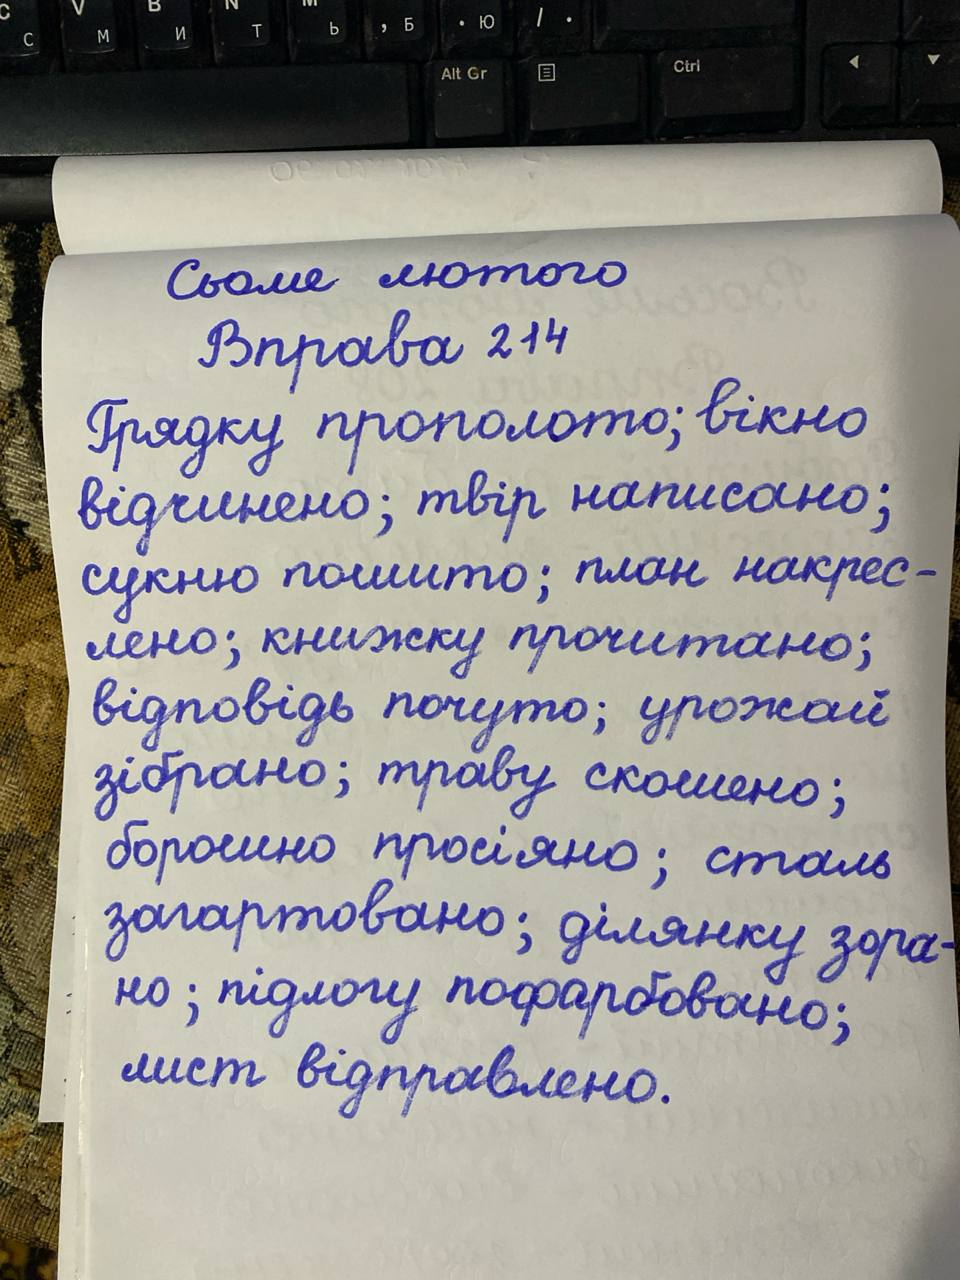 C V B N M
С М И Т Ь , Б . Ю / .
Alt Gr Ctrl
Сьоме лютого
Вправа 214
Грядку прополото; вікно
відчинено; твір написано;
сукню пошито; план накрес-
лено; книжку прочитано;
відповідь почуто; урожай
зібрано; траву скошено;
борошно просіяно; сталь
загартовано; ділянку зора-
но; підлогу пофарбовано;
лист відправлено.